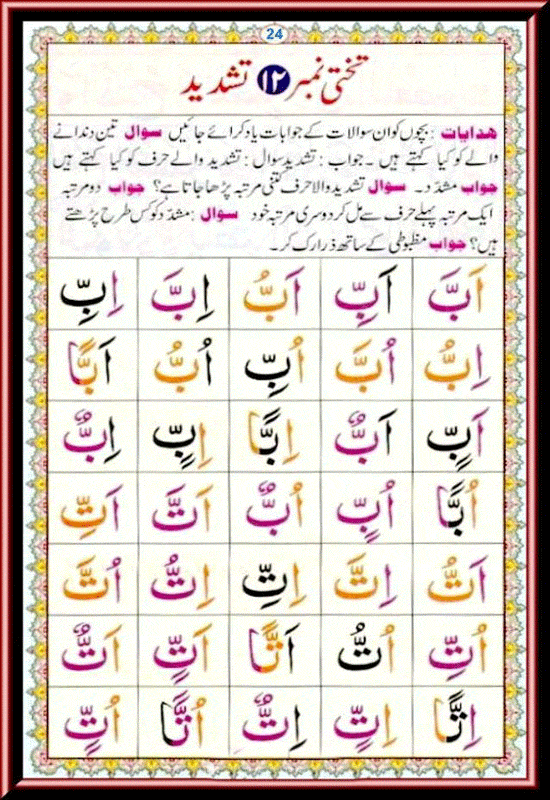 24
تختی نمبر ۱۲ تشدید
ھدایات : بچوں کو ان سوالات کے جوابات یاد کرائے جائیں سوال تین دندانے
والے کو کیا کہتے ہیں ۔ جواب : تشدید سوال : تشدید والے حرف کو کیا کہتے ہیں
جواب مشدّد۔ سوال تشدید والا حرف کتنی مرتبہ پڑھا جاتا ہے؟ جواب دو مرتبہ
ایک مرتبہ پہلے حرف سے مل کر دوسری مرتبہ خود سوال : مشدّد کو کس طرح پڑھتے
ہیں؟ جواب مظبوطی کے ساتھ ذرا رک کر۔
اَبَّ اَبِّ اَبُّ اِبَّ اِبِّ
اِبُّ اُبَّ اُبِّ اُبُّ اَبًّا
اَبٍّ اَبٌّ اِبًّا اِبٍّ اِبٌّ
اُبًّا اُبٍّ اُبٌّ اَتَّ اَتِّ
اَتُّ اِتَّ اِتِّ اِتُّ اُتَّ
اُتِّ اُتُّ اَتًّا اَتٍّ اَتٌّ
اِتًّا اِتٍّ اِتٌّ اُتًّا اُتٍّ